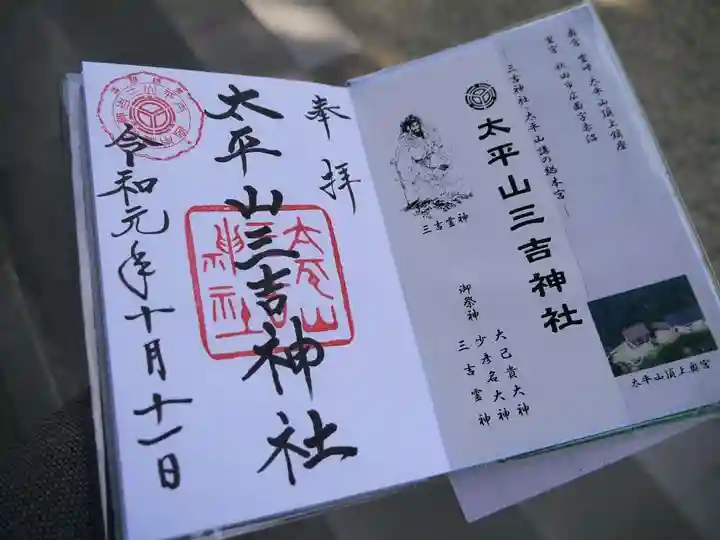 奥宮 霊峰 太平山頂上鎮座
里宮 秋田市広面字赤沼
―三吉神社・太平山講の総本宮―
太平山三吉神社
三吉霊神
御祭神
大己貴大神
少彦名大神
三吉霊神
太平山頂上奥宮
奉拝
太平山三吉神社
令和元年十月十一日